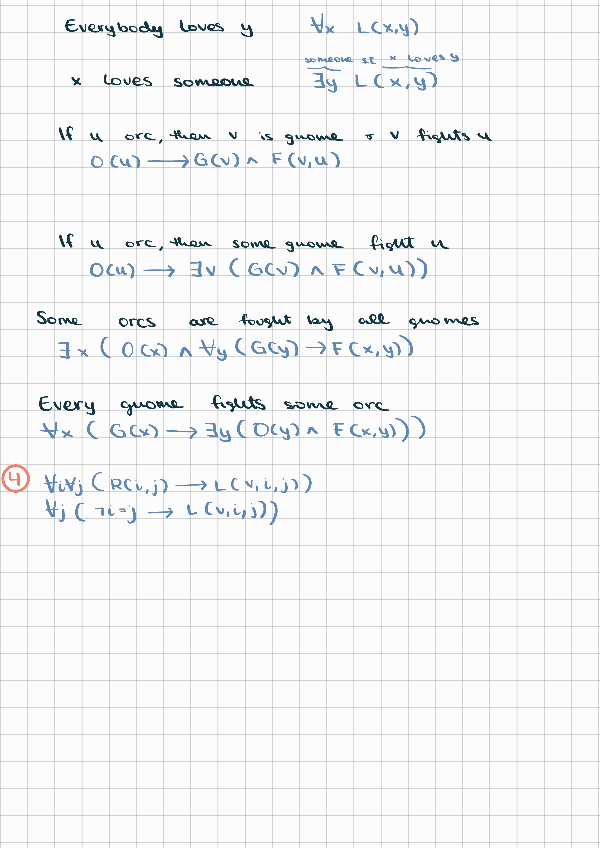 Everybody loves y ∀x L(x,y)
someone st x loves y
x loves someone ∃y L(x,y)
If u orc, then v is gnome & v fights u
O(u) ⟶ G(v) ∧ F(v,u)
If u orc, then some gnome fight u
O(u) ⟶ ∃v (G(v) ∧ F(v,u))
Some orcs are fought by all gnomes
∃x (O(x) ∧ ∀y (G(y) → F(x,y))
Every gnome fights some orc
∀x (G(x) ⟶ ∃y (O(y) ∧ F(x,y)))
4 ∀i∀j (R(i,j) ⟶ L(v,i,j))
∀j (¬i=j ⟶ L(v,i,j))